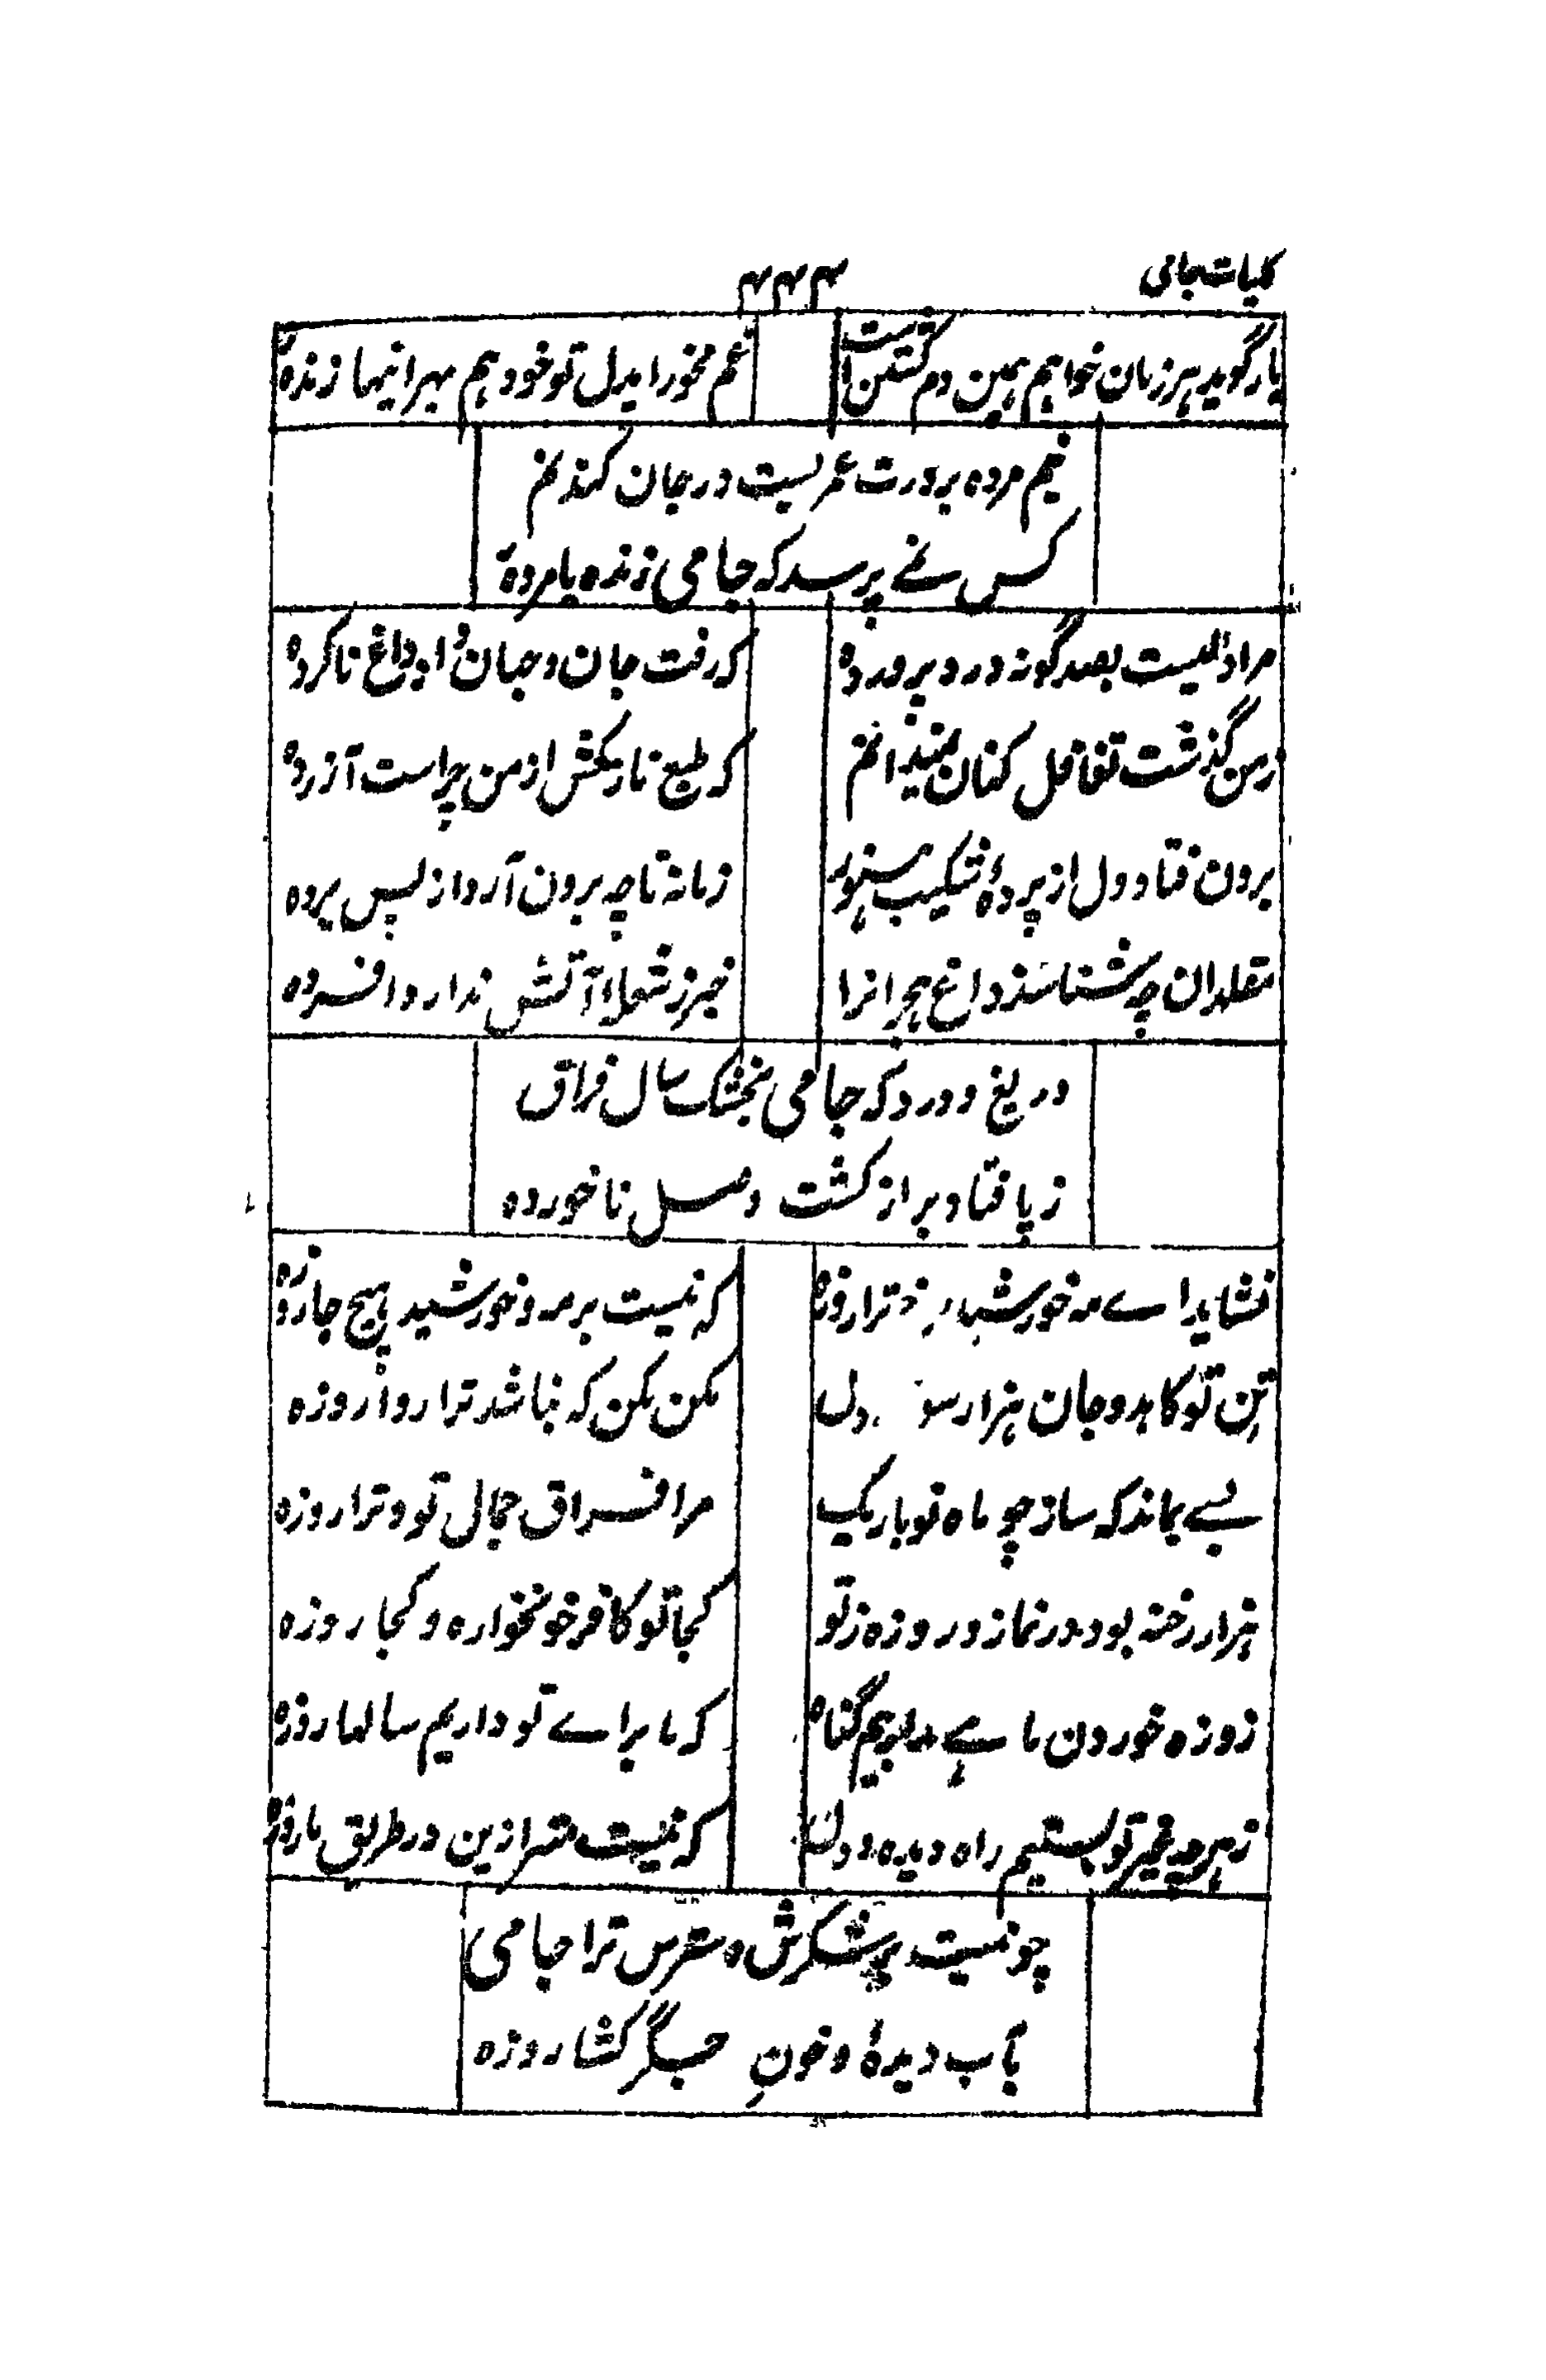 کلیات جامی
۴۴۴
یار گوید هر زمان خواهم همین دم کشتن است
غم مخور ایدل تو خود هم بهر اینها زندهٔ
نیم مرده بر درت عمریست در جان کندنم
کس نمے پرسد که جامی زنده یا مردهٔ
مرا دلیست بصد گونه درد پرورده
که رفت جان و جهان را وداغ ناکرده
زمن گذشت تغافل کنان نمیدانم
که طبع نازکش از من چراست آزرده
برون فتاد دل از پردهٔ شکیب هنوز
زمانه تا چه برون آرد از پس پرده
مقلدان چه شناسند داغ هجرانرا
خبر ز شعلهٔ آتش ندارد افسرده
دریغ و درد که جامی بخشک سال فراق
ز پا فتاد بر از کشت وصل ناخورده
نشاید اے مه ترا روزه
که نیست بر مه و خورشید هیچ جا روزه
تن تو کاهد و جان هزار دل
مکن مکن که نباشد ترا روا روزه
بسے نماند که سازد چو ماه نو باریک
مرا فراق جمال تو و ترا روزه
هزار رخنه بود در نماز و روزه ز تو
کجا تو کافر خونخواره و کجا روزه
ز روزه خوردن ما هے مدار بیم گناه
که ما براے تو داریم سالها روزه
ز هر چه غیر تو بستیم راه دیده و دل
که نیست فتر ازین در طریق ما روزه
چو نیست بر شکرش دسترس ترا جامی
بآب دیدهٔ و خون جگر کشا روزه